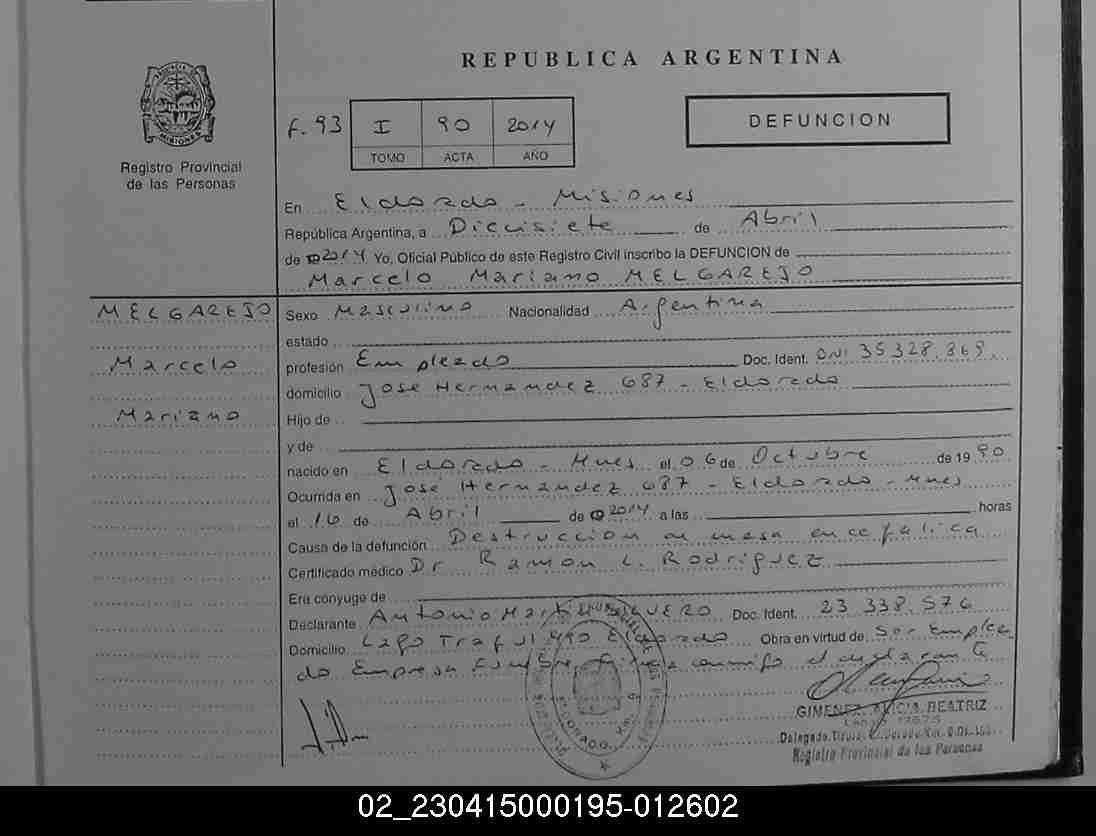 REPUBLICA ARGENTINA
F. 93 I 90 2014
TOMO ACTA AÑO
DEFUNCION
PROVINCIA DE MISIONES
Registro Provincial
de las Personas
En Eldorado - Misiones
República Argentina, a Diecisiete de Abril
de 2014 Yo, Oficial Público de este Registro Civil inscribo la DEFUNCION de
Marcelo Mariano MELGAREJO
MELGAREJO
Marcelo
Mariano
Sexo Masculino Nacionalidad Argentina
estado
profesión Empleado Doc. Ident. DNI 35328.869.
domicilio Jose Hernandez 687 - Eldorado
Hijo de
y de
nacido en Eldorado - Mnes el 06 de Octubre de 1990
Ocurrida en Jose Hernandez 687 - Eldorado - Mnes
el 16 de Abril de 2014 a las horas
Causa de la defunción Destruccion de masa encefalica
Certificado médico Dr Ramon L. Rodriguez
Era cónyuge de
Declarante Antonio Martin Doc. Ident. 23 338.576
Domicilio Lago Traful 490 Eldorado Obra en virtud de Ser Emplea
do Empresa Funebre Firma conmigo el declarante
GIMENEZ ALICIA BEATRIZ
Delegada Titular
Registro Provincial de las Personas
02_230415000195-012602